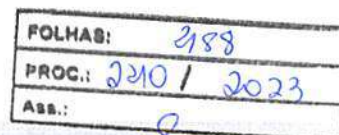 FOLHAS: 2188
PROC.: 2210 / 2023
Ass.: